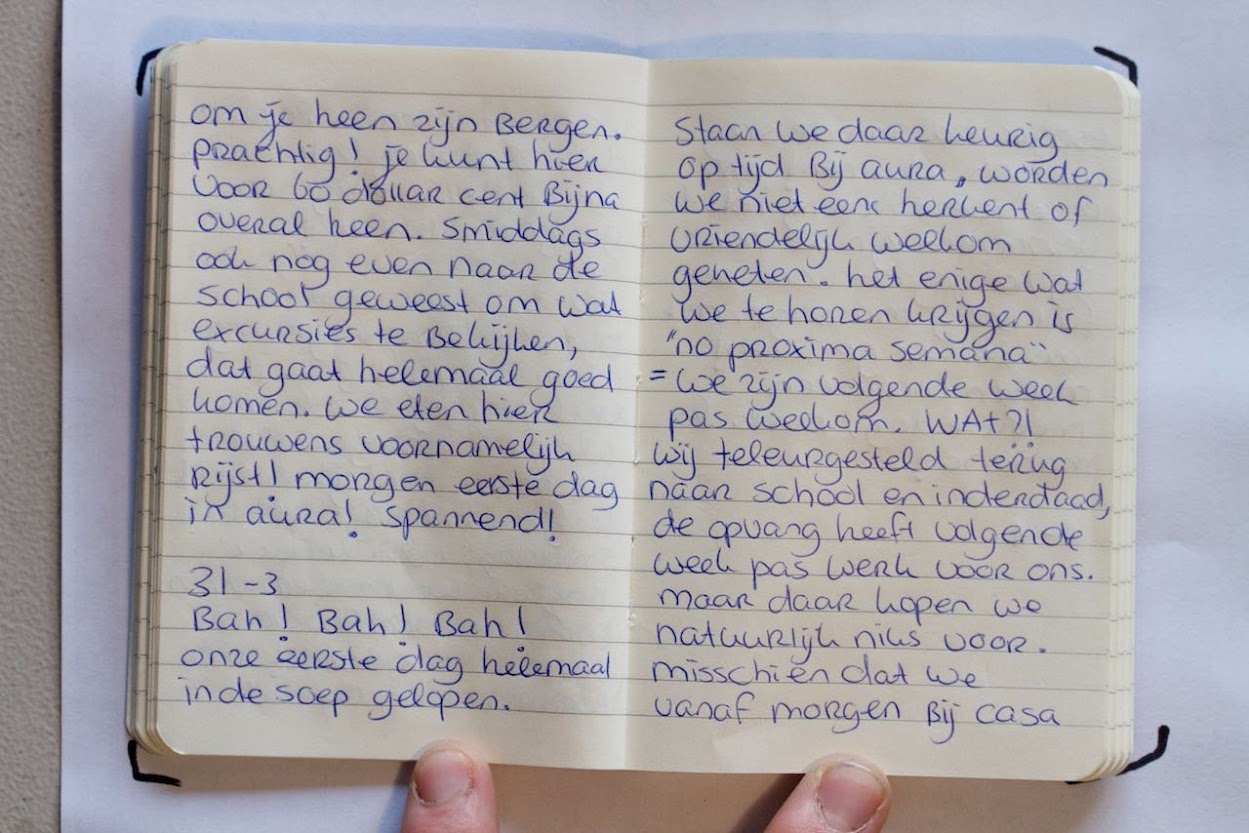 om je heen zijn Bergen.
prachtig! je kunt hier
voor 60 dollar cent Bijna
overal heen. Smiddags
ook nog even naar de
school geweest om wat
excursies te Bekijken,
dat gaat helemaal goed
komen. We eten hier
trouwens voornamelijk
Rijst! morgen eerste dag
in aura! Spannend!
31-3
Bah! Bah! Bah!
onze eerste dag helemaal
in de soep gelopen.
Staan we daar keurig
op tijd Bij aura, worden
we niet eens herkent of
vriendelijk welkom
geheten. het enige wat
we te horen krijgen is
"no proxima semana"
= We zijn volgende week
pas welkom. WAt?!
Wij teleurgesteld terug
naar school en inderdaad,
de opvang heeft volgende
week pas werk voor ons.
maar daar kopen we
natuurlijk niks voor.
misschien dat we
vanaf morgen Bij casa